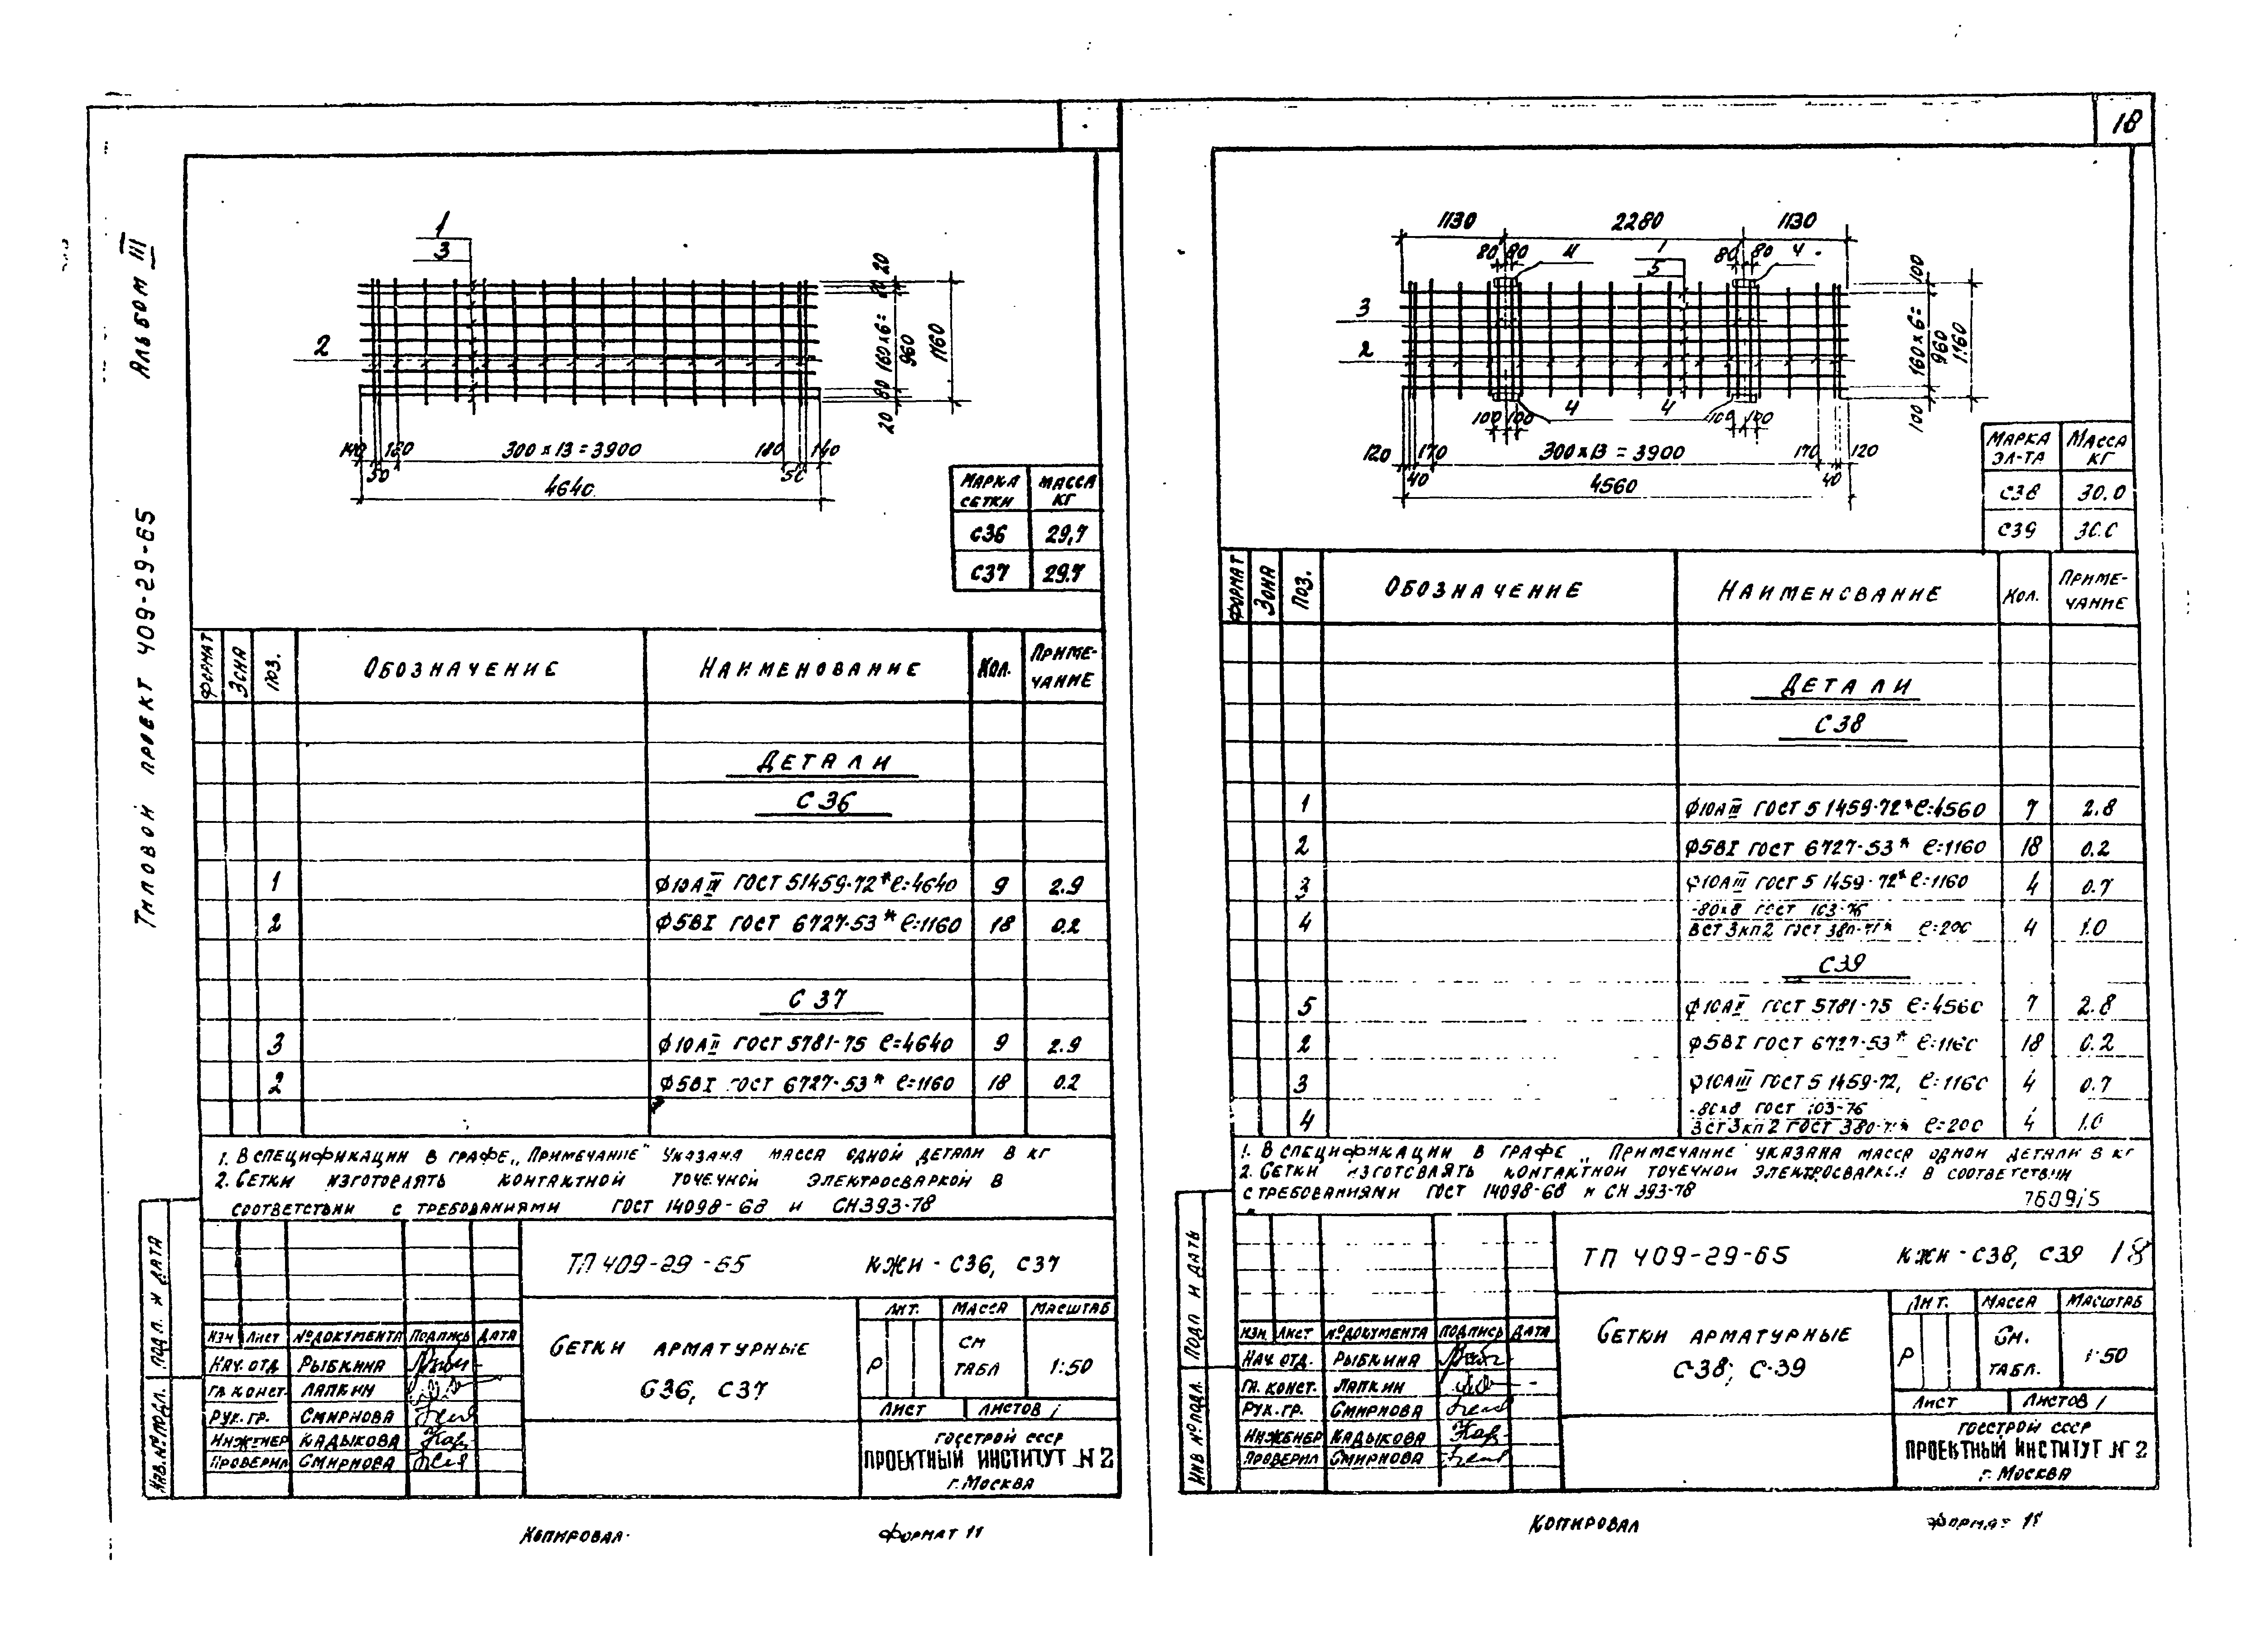 Альбом III
Типовой проект 409-29-65
1
3
2
20
80 160×6= 
960
1160
20
140 180 300×13=3900 180 140
50 50
4640
МАРКА СЕТКИ МАССА КГ
С36 29,7
С37 29.7
ФОРМАТ ЗОНА ПОЗ. ОБОЗНАЧЕНИЕ НАИМЕНОВАНИЕ КОЛ. ПРИМЕ-ЧАНИЕ
ДЕТАЛИ
С 36
1 ϕ10АIII ГОСТ 51459-72* ℓ=4640 9 2.9
2 ϕ5ВI ГОСТ 6727-53* ℓ=1160 18 0.2
С 37
3 ϕ10АII ГОСТ 5781-75 ℓ=4640 9 2.9
2 ϕ5ВI ГОСТ 6727-53* ℓ=1160 18 0.2
1. В СПЕЦИФИКАЦИИ В ГРАФЕ „ПРИМЕЧАНИЕ" УКАЗАНА МАССА ОДНОЙ ДЕТАЛИ В КГ
2. СЕТКИ ИЗГОТОВЛЯТЬ КОНТАКТНОЙ ТОЧЕЧНОЙ ЭЛЕКТРОСВАРКОЙ В
СООТВЕТСТВИИ С ТРЕБОВАНИЯМИ ГОСТ 14098-68 И СН393-78
ТП 409-29-65 КЖИ-С36, С37
ЛИТ. МАССА МАСШТАБ
Р СМ ТАБЛ 1:50
СЕТКИ АРМАТУРНЫЕ
С36, С37
ИЗМ ЛИСТ №ДОКУМЕНТА ПОДПИСЬ ДАТА
НАЧ. ОТД РЫБКИНА
ГЛ КОНСТ. ЛАПКИН
РУК. ГР. СМИРНОВА
ИНЖЕНЕР КАДЫКОВА
ПРОВЕРИЛ СМИРНОВА
ЛИСТ ЛИСТОВ 1
ГОССТРОЙ СССР
ПРОЕКТНЫЙ ИНСТИТУТ №2
Г. МОСКВА
ИНВ. № ПОДЛ. ПОДП. И ДАТА
КОПИРОВАЛ ФОРМАТ 11
18
1130 2280 1130
80 80 4 1 80 80 4
5
3
2
100
160×6=
960
1160
100
100 100 4 4 100 100
120 170 300×13=3900 170 120
40 40
4560
МАРКА ЭЛ-ТА МАССА КГ
С38 30.0
С39 30.0
ФОРМАТ ЗОНА ПОЗ. ОБОЗНАЧЕНИЕ НАИМЕНОВАНИЕ КОЛ. ПРИМЕ-ЧАНИЕ
ДЕТАЛИ
С 38
1 ϕ10АIII ГОСТ 51459-72* ℓ=4560 7 2.8
2 ϕ5ВI ГОСТ 6727-53* ℓ=1160 18 0.2
3 ϕ10АIII ГОСТ 51459-72* ℓ=1160 4 0.7
-80×8 ГОСТ 103-76
4 ВСТ3КП2 ГОСТ 380-71* ℓ=200 4 1.0
С39
5 ϕ10АII ГОСТ 5781-75 ℓ=4560 7 2.8
2 ϕ5ВI ГОСТ 6727-53* ℓ=1160 18 0.2
3 ϕ10АIII ГОСТ 51459-72, ℓ=1160 4 0.7
-80×8 ГОСТ 103-76
4 ВСТ3КП2 ГОСТ 380-71* ℓ=200 4 1.0
1. В СПЕЦИФИКАЦИИ В ГРАФЕ „ПРИМЕЧАНИЕ" УКАЗАНА МАССА ОДНОЙ ДЕТАЛИ В КГ
2. СЕТКИ ИЗГОТОВЛЯТЬ КОНТАКТНОЙ ТОЧЕЧНОЙ ЭЛЕКТРОСВАРКОЙ В СООТВЕТСТВИИ
С ТРЕБОВАНИЯМИ ГОСТ 14098-68 И СН 393-78
7609/5
ТП 409-29-65 КЖИ-С38, С39 18
ЛИТ. МАССА МАСШТАБ
Р СМ. ТАБЛ. 1:50
СЕТКИ АРМАТУРНЫЕ
С38; С39
ИЗМ ЛИСТ №ДОКУМЕНТА ПОДПИСЬ ДАТА
НАЧ. ОТД. РЫБКИНА
ГЛ. КОНСТ. ЛАПКИН
РУК. ГР. СМИРНОВА
ИНЖЕНЕР КАДЫКОВА
ПРОВЕРИЛ СМИРНОВА
ЛИСТ ЛИСТОВ 1
ГОССТРОЙ СССР
ПРОЕКТНЫЙ ИНСТИТУТ №2
Г. МОСКВА
ИНВ № ПОДЛ. ПОДП И ДАТЬ
КОПИРОВАЛ ФОРМАТ 11